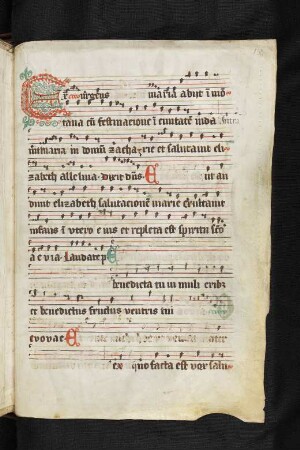 Exurgens maria abijt i mo-
tana cū festinacione ī ciuitatē iuda
et intrauit in domū zacharie et salutauit eli
zabeth alleluia. Dixit dn̄s. E ut au
diuit elizabeth salutacionem marie exultauit
infans ī vtero eius et repleta est spiritu sco
a e via. Laudate p
benedicta tu ī muli eribz
et benedictus fructus ventris tui
evovae E
ex quo facta est vox salu-